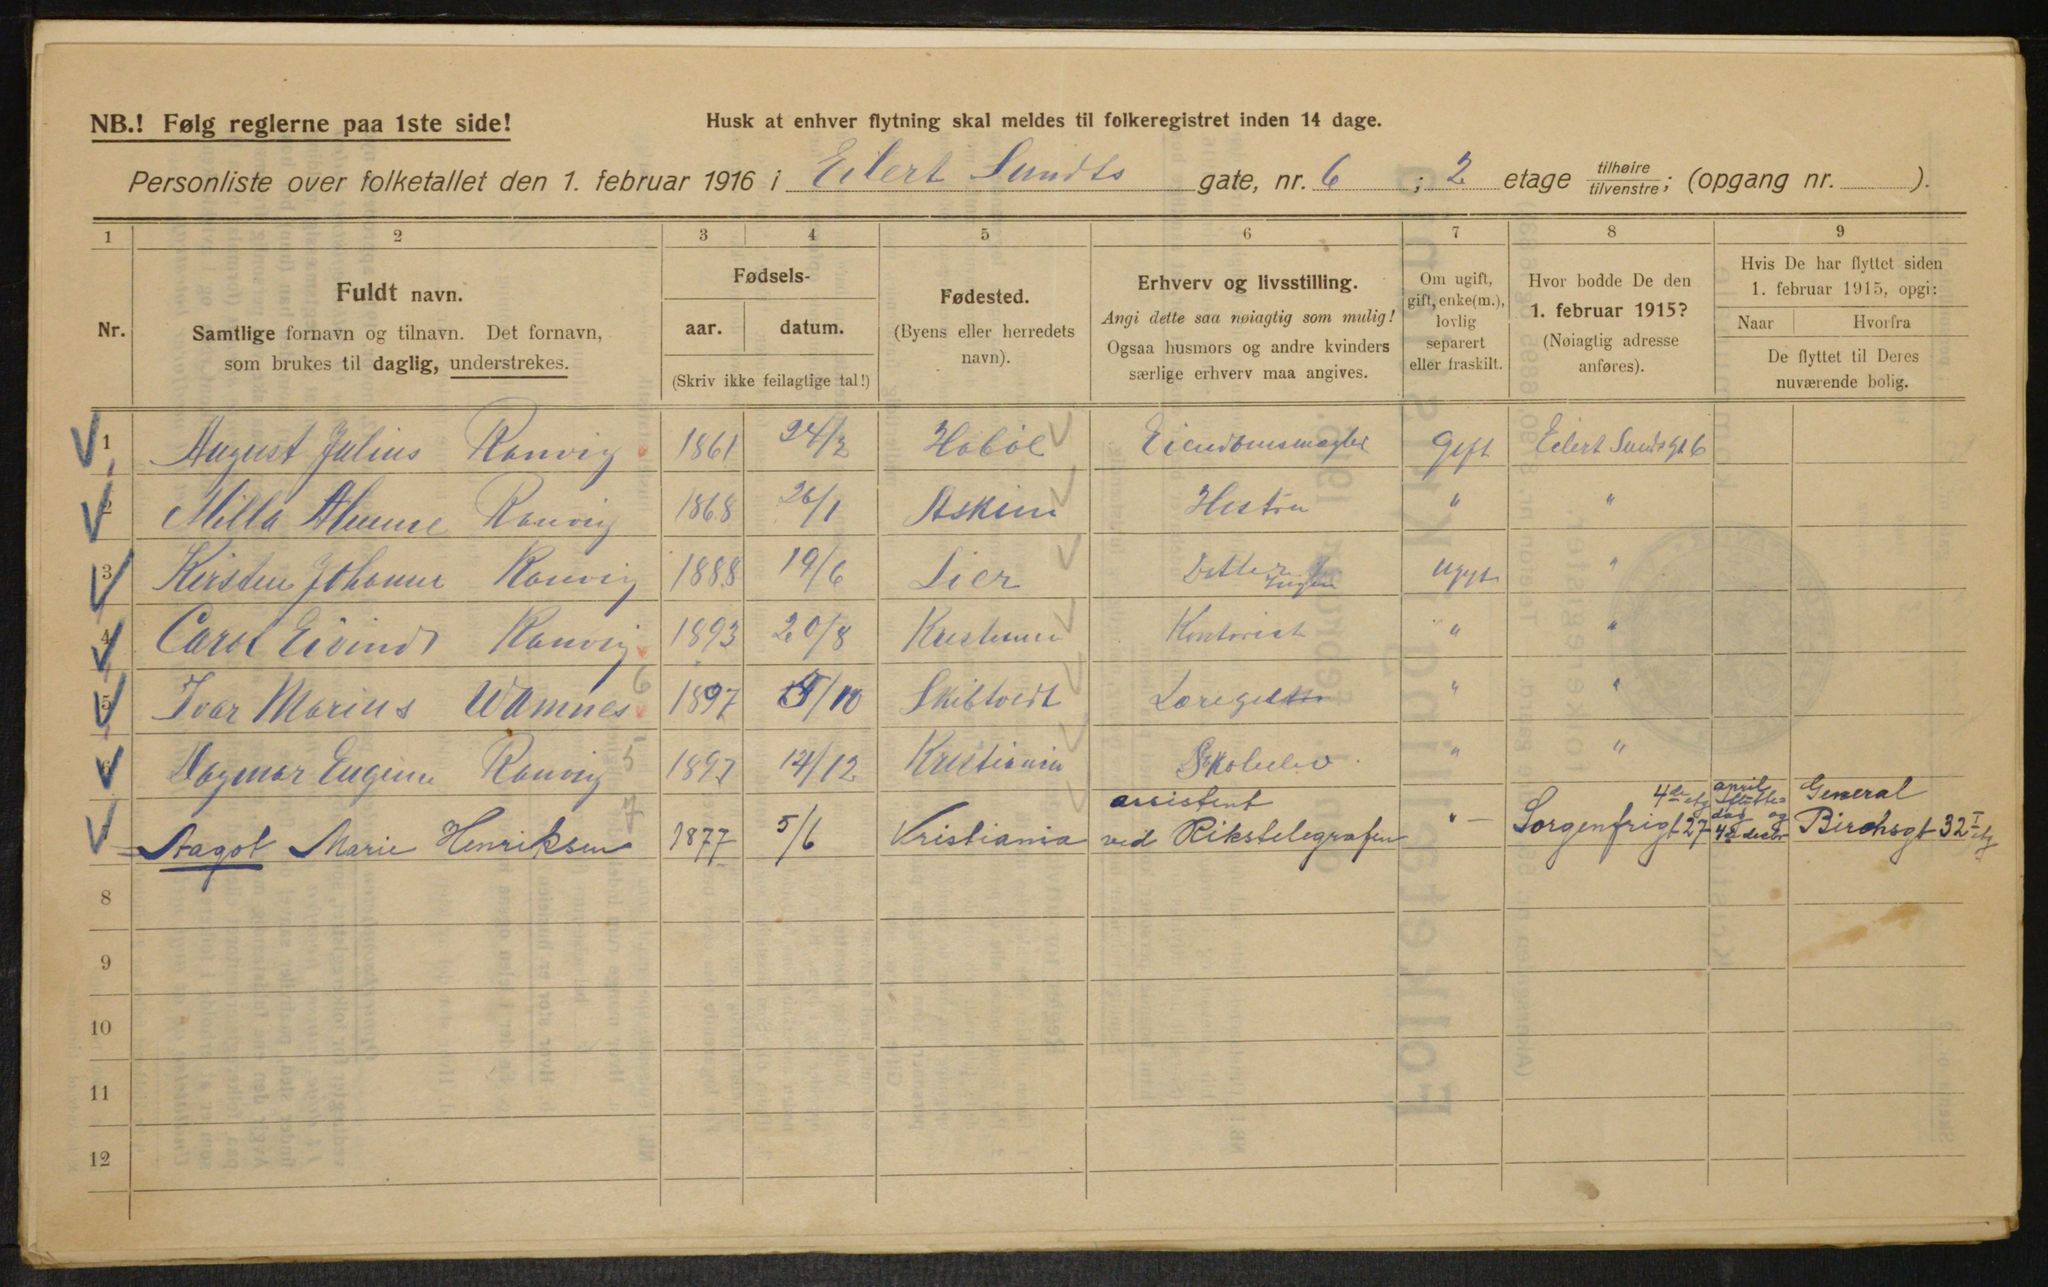 NB.! Følg reglerne paa 1ste side!
Husk at enhver flytning skal meldes til folkeregistret inden 14 dage.
Personliste over folketallet den 1. februar 1916 i Eilert Sundts gate, nr. 6 ; 2 etage tilhøire/tilvenstre; (opgang nr. ).
1 2 3 4 5 6 7 8 9
Nr.
Fuldt navn.
Samtlige fornavn og tilnavn. Det fornavn,
som brukes til daglig, understrekes.
Fødsels-
aar. datum.
(Skriv ikke feilagtige tal!)
Fødested.
(Byens eller herredets
navn).
Erhverv og livsstilling.
Angi dette saa nøiagtig som mulig!
Ogsaa husmors og andre kvinders
særlige erhverv maa angives.
Om ugift,
gift, enke(m.),
lovlig
separert
eller fraskilt.
Hvor bodde De den
1. februar 1915?
(Nøiagtig adresse
anføres).
Hvis De har flyttet siden
1. februar 1915, opgi:
Naar Hvorfra
De flyttet til Deres
nuværende bolig.
1 August Julius Ranvig 1861 24/2 Hobøl Eiendomsmægler Gift Eilert Sundsgt 6
2 Milla Ranvig 1868 26/1 Askim Hustru " "
3 Kirsten Johanne Ranvig 1888 19/6 Lier Datter Ingen Ugift "
4 Carl Eivind Ranvig 1893 20/8 Kristiania Kontorist " "
5 Ivar Marius Wamnes 1897 /10 Skibtvedt " "
6 Dagmar Eugenie Ranvig 1897 14/12 Kristiania Skoleelev " "
Aagot Marie Henriksen 1877 5/6 Kristiania assistent ved Rikstelegrafen " Sorgenfrigt 27 4de etg april flyttedag og General Birchsgt 32 I etg
8
9
10
11
12